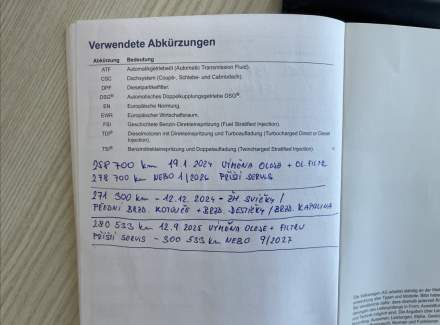 Verwendete Abkürzungen
Abkürzung Bedeutung
ATF Automatikgetriebeöl (Automatic Transmission Fluid).
CSC Dachsystem (Coupé-, Schiebe- und Cabriodach).
DPF Dieselpartikelfilter.
DSG® Automatisches Doppelkupplungsgetriebe DSG®.
EN Europäische Normung.
EWR Europäischer Wirtschaftsraum.
FSI Geschichtete Benzin-Direkteinspritzung (Fuel Stratified Injection).
TDI® Dieselmotoren mit Direkteinspritzung und Turboaufladung (Turbocharged Direct or Diesel
Injection).
TSI® Benzindirekteinspritzung und Doppelaufladung (Twincharged Stratified Injection).
258 700 km 19.1 2024 VÝMĚNA OLEJE + OL. FILTR
278 700 km NEBO 1/2026 PŘÍŠTÍ SERVIS
271 300 km - 12.12. 2024 - ŽH. SVÍČKY /
PŘEDNÍ BRZD. KOTOUČE + BRZD. DESTIČKY / BRZD. KAPALINA
280 533 km 12.9 2025 VÝMĚNA OLEJE + FILTRU
PŘÍŠTÍ SERVIS - 300 533 km NEBO 9/2027